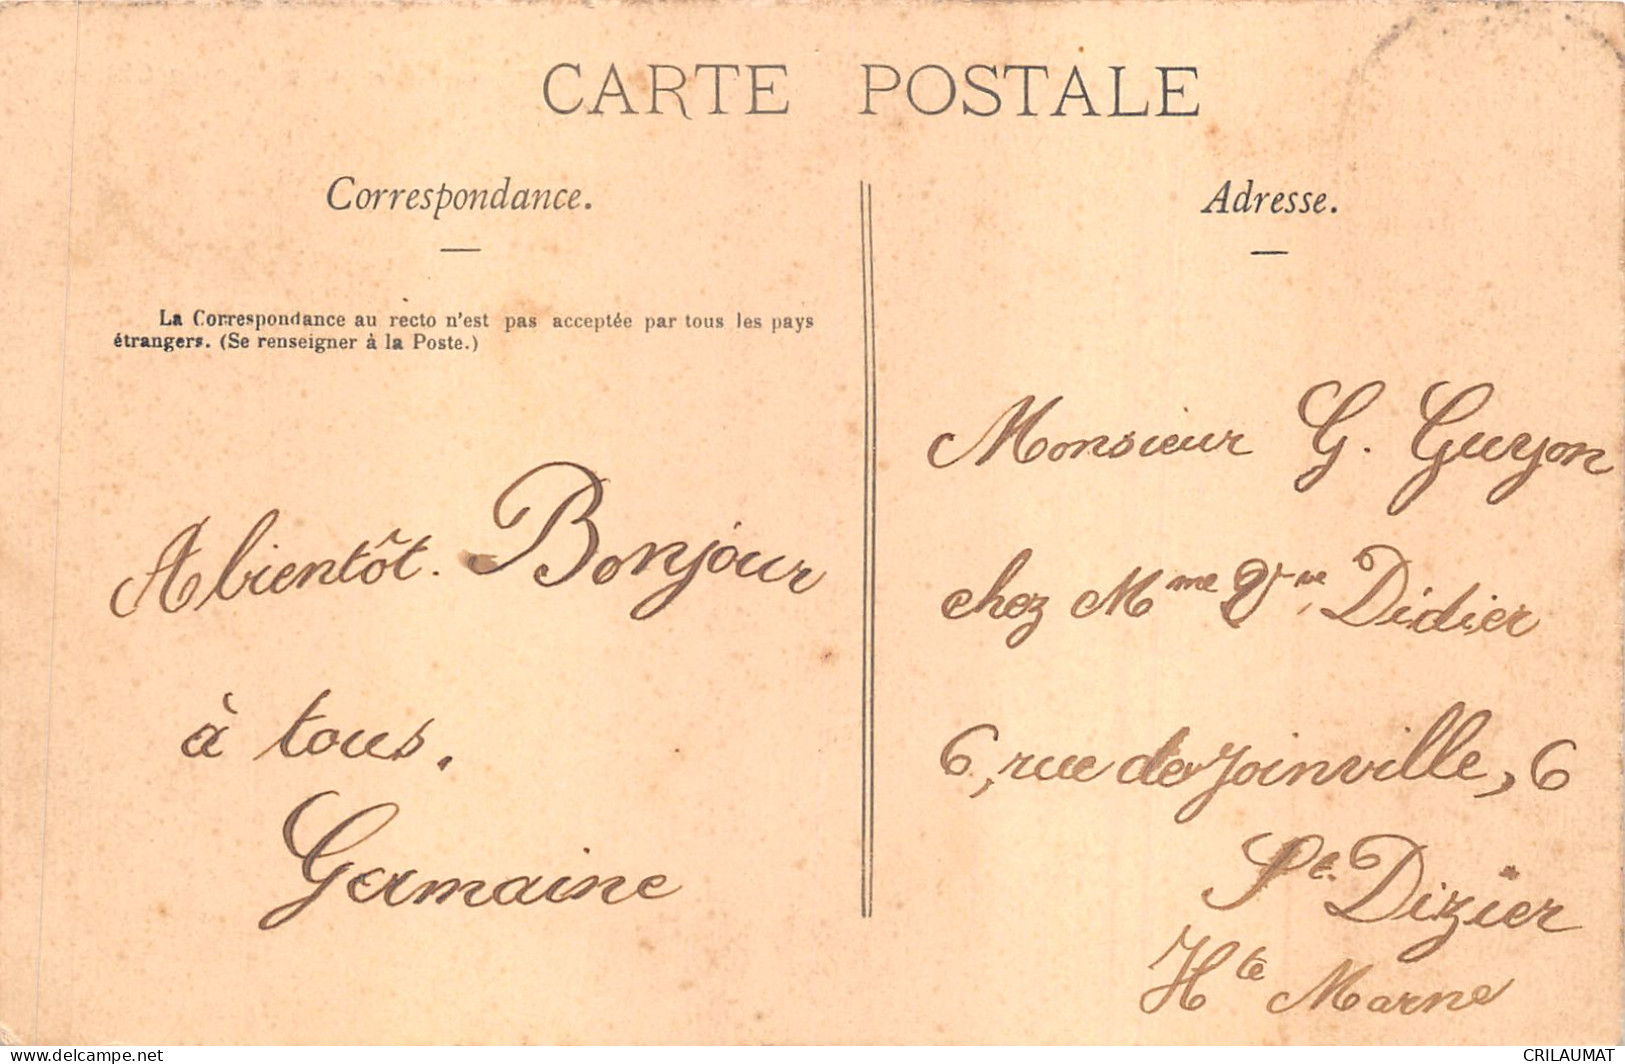 CARTE POSTALE
Correspondance.
La Correspondance au recto n'est pas acceptée par tous les pays
étrangers. (Se renseigner à la Poste.)
A bientôt. Bonjour
à tous.
Germaine
Adresse.
Monsieur G. Guyon
chez Mme Vve Didier
6, rue de Joinville, 6
St. Dizier
Hte Marne
www.delcampe.net
CRILAUMAT